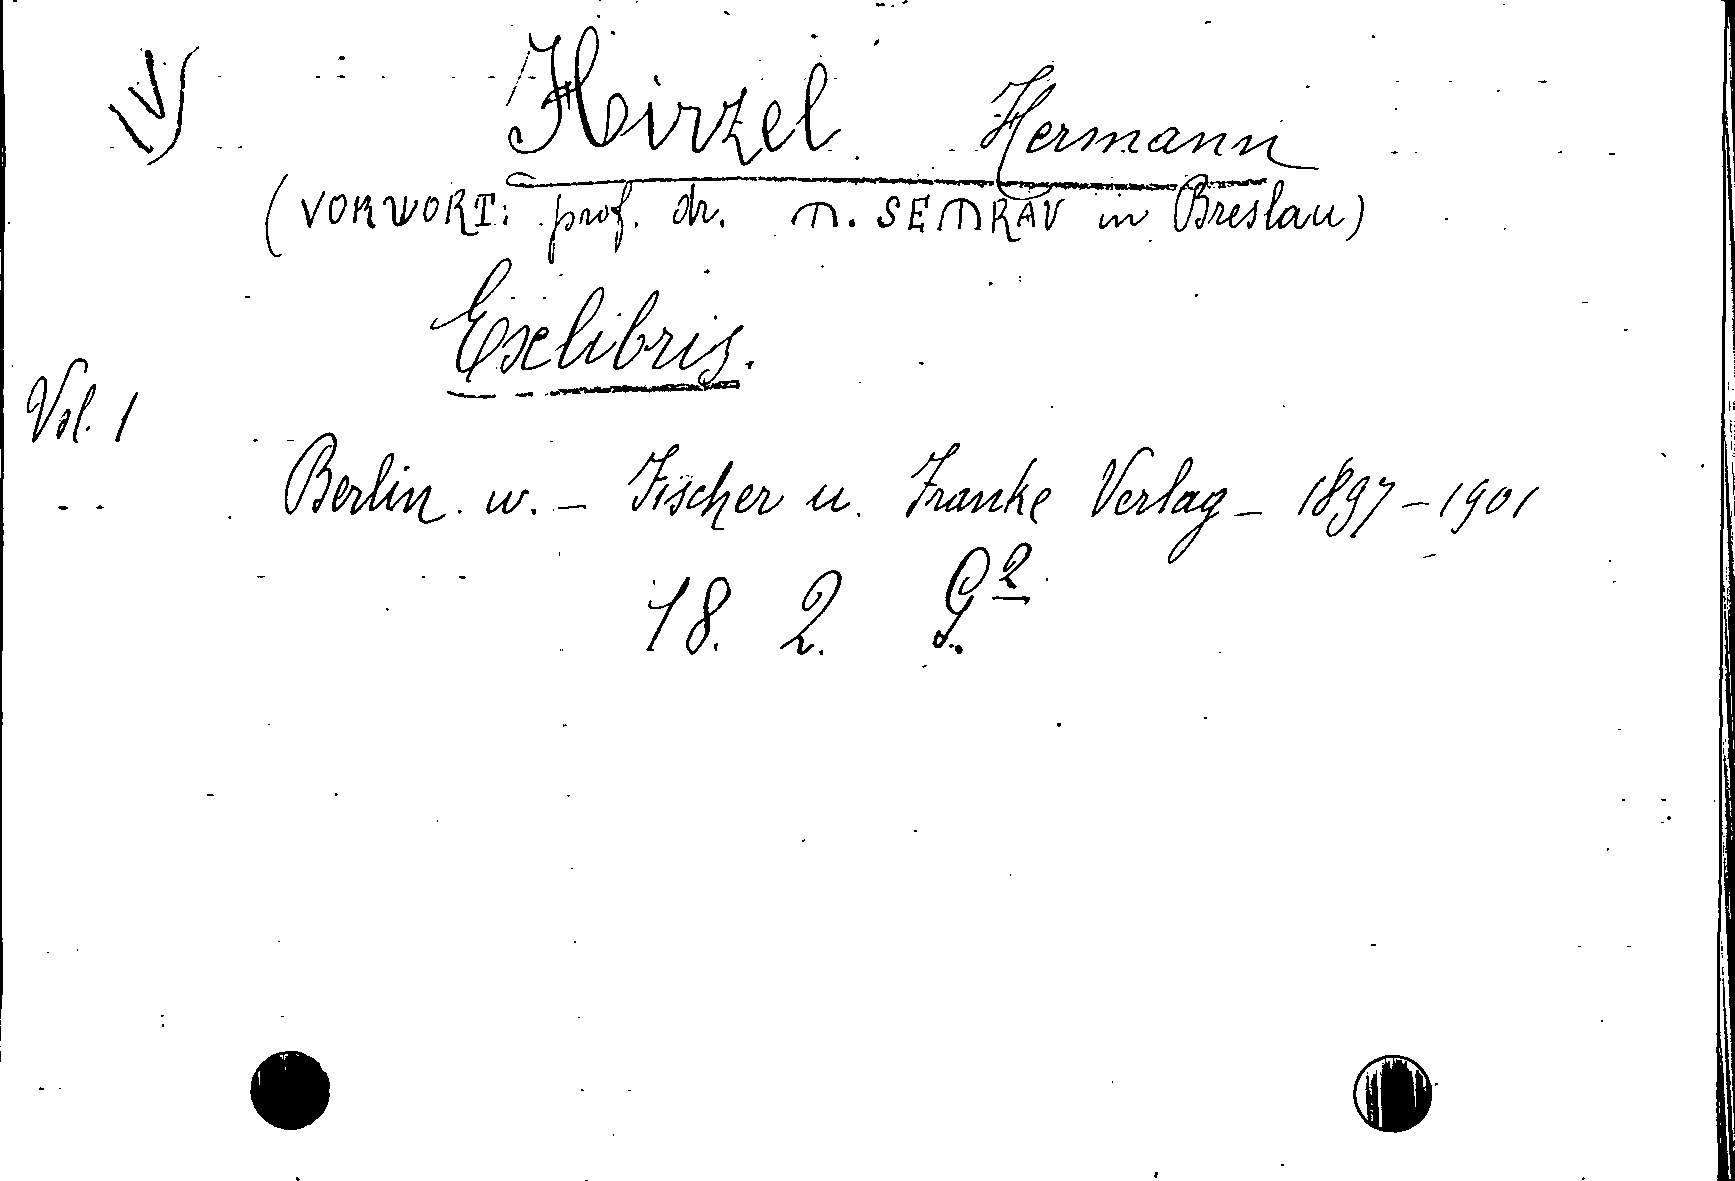 IV)
Hirzel Hermann
(VORWORT: prof. dr. M. SEMRAV in Breslau)
Exlibris.
Vol. 1
Berlin w. - Fischer u. Franke Verlag - 1897-1901
18. 2. G²